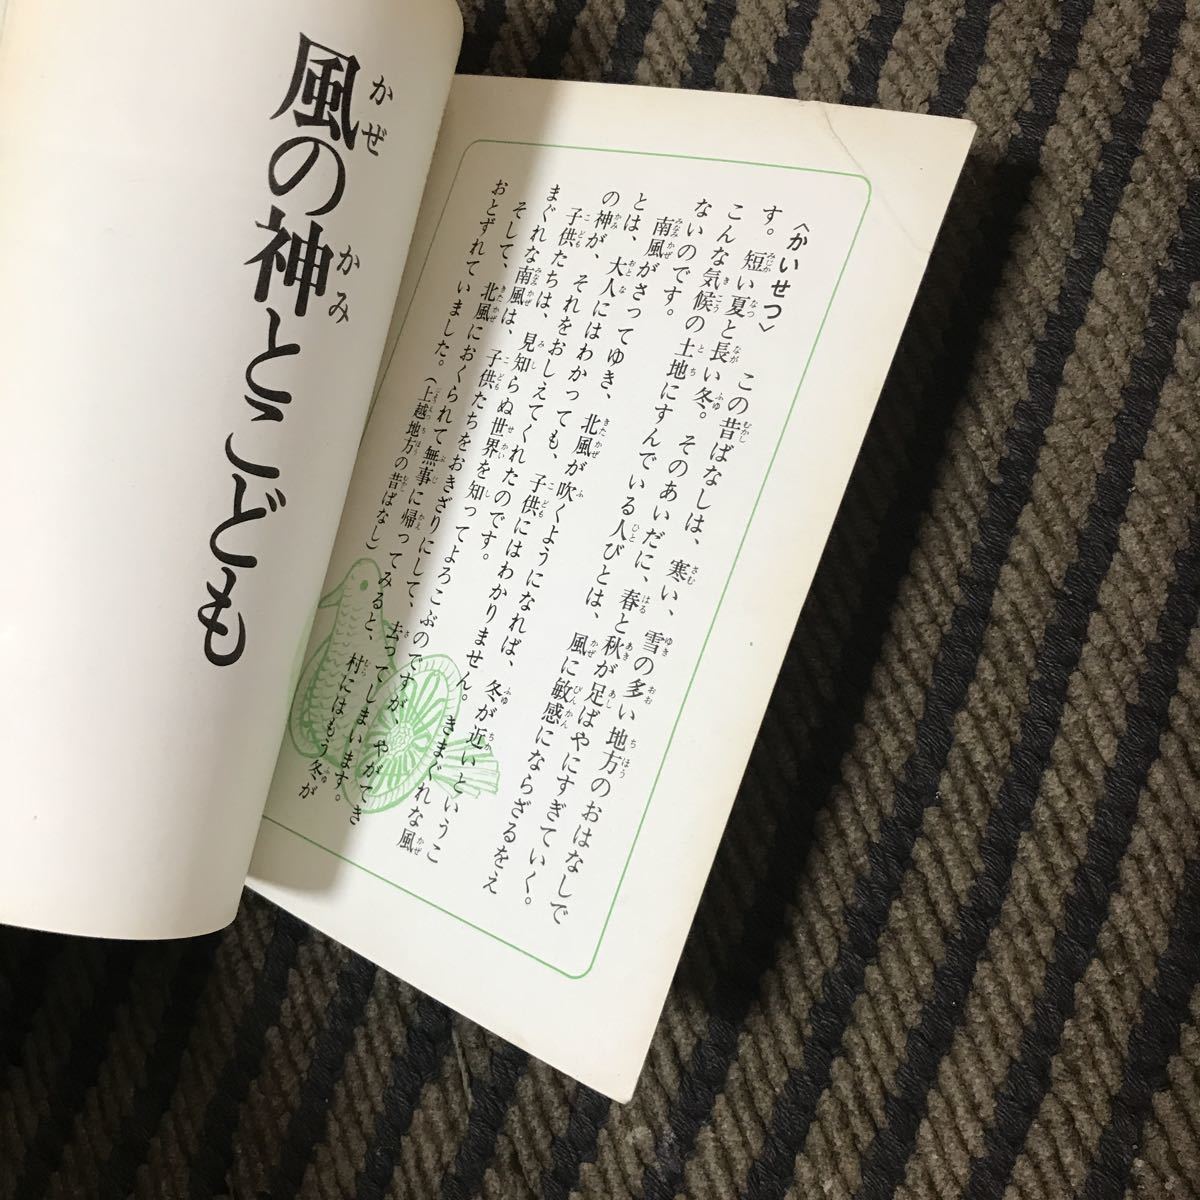 〈かいせつ〉 この昔ばなしは、寒い、雪の多い地方のおはなしで
す。短い夏と長い冬。そのあいだに、春と秋が足ばやにすぎていく。
こんな気候の土地にすんでいる人びとは、風に敏感にならざるをえ
ないのです。
南風がさってゆき、北風が吹くようになれば、冬が近いというこ
とは、大人にはわかっても、子供にはわかりません。きまぐれな風
の神が、それをおしえてくれたのです。
子供たちは、見知らぬ世界を知ってよろこぶのですが、やがてき
まぐれな南風は、子供たちをおきざりにして、去ってしまいます。
そして、北風におくられて無事に帰ってみると、村にはもう冬が
おとずれていました。(上越地方の昔ばなし)
かぜ かみ
風の神とこども